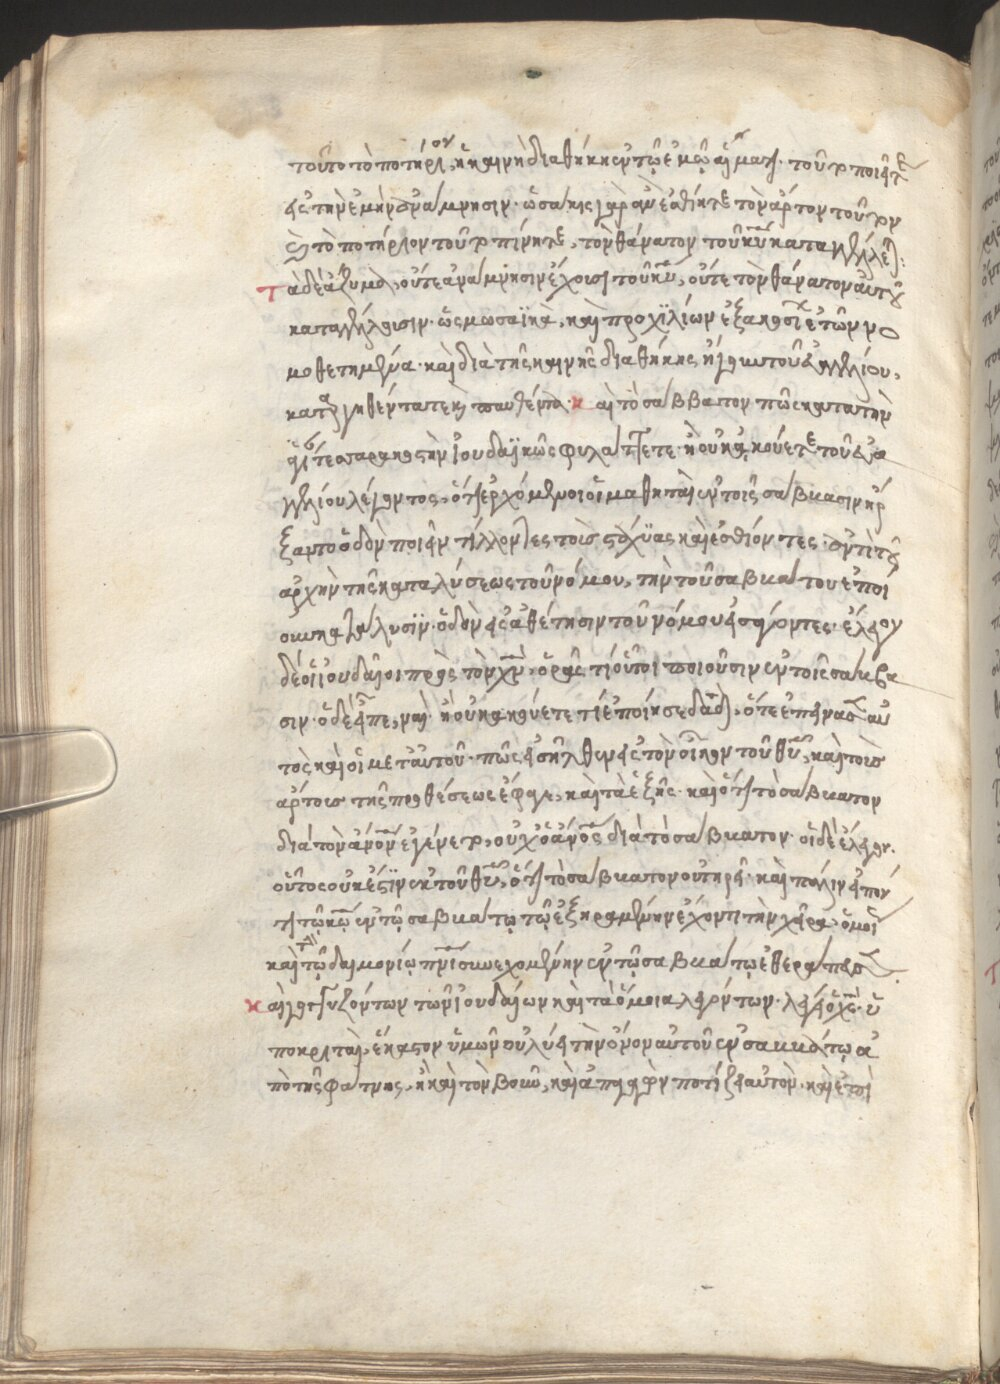 τοῦτο τὸ ποτήριον, ἡ καινὴ διαθήκη ἐν τῷ ἐμῷ αἵματι· τοῦτο ποιεῖτε
εἰς τὴν ἐμὴν ἀνάμνησιν· ὡσάκις γὰρ ἂν ἐσθίητε τὸν ἄρτον τοῦτον
καὶ τὸ ποτήριον τοῦτο πίνητε, τὸν θάνατον τοῦ κυ καταγγέλλετε:
Τὰ δὲ ἄζυμα, οὔτε ἀνάμνησιν ἔχουσι τοῦ κυ, οὔτε τὸν θάνατον αὐτοῦ
καταγγέλλουσιν· ὡς μωσαϊκὰ, καὶ πρὸ χιλίων ἑξακοσίων ἐτῶν νο
μοθετημένα· καὶ διὰ τῆς καινῆς διαθήκης ἤγουν τοῦ εὐαγγελίου,
καταργηθέντα τε καὶ παυθέντα· καὶ τὸ σάββατον πῶς κατὰ τὴν
παρασκευὴν ἰουδαϊκῶς φυλάττετε· ἢ οὐκ ἀκούετε τοῦ εὐα
γγελίου λέγοντος, ὅτι ἐρχόμενοι οἱ μαθηταὶ ἐν τοῖς σάββασιν ἤρ
ξαντο ὁδὸν ποιεῖν τίλλοντες τοὺς στάχυας καὶ ἐσθίοντες· ἀντὶ τοῦ
ἀρχὴν τῆς καταλύσεως τοῦ νόμου, τὴν τοῦ σαββάτου ἐποί
ουν κατάλυσιν· ὁδὸν εἰς ἀθέτησιν τοῦ νόμου εἰσάγοντες· ἔλεγον
δὲ οἱ ἰουδαῖοι πρὸς τὸν χν, ὁρᾷς τί ὅτι ποιοῦσιν ἐν τοῖς σάββα
σιν· ὁ δὲ εἶπε, ναί· ἢ οὐκ ἀκούετε τί ἐποίησε δαδ, ὅτε ἐπείνασεν αὐ
τὸς καὶ οἱ μετ' αὐτοῦ· πῶς εἰσῆλθεν εἰς τὸν οἶκον τοῦ θυ, καὶ τοὺς
ἄρτους τῆς προθέσεως ἔφαγε, καὶ τὰ ἑξῆς· καὶ ὅτι τὸ σάββατον
διὰ τὸν ἄνον ἐγένετο, οὐχ ὁ ἄνος διὰ τὸ σάββατον· οἱ δὲ ἔλεγον·
οὗτος οὐκ ἔστιν ἐκ τοῦ θυ, ὅτι τὸ σάββατον οὐ τηρεῖ· καὶ πάλιν εἰπόν
τι τῷ κω ἐν τῷ σαββάτῳ τῷ ἐξηραμμένην ἔχοντι τὴν χεῖρα· ὁμοί
καὶ τῷ δαιμονίῳ πνι συνεχομένην ἐν τῷ σαββάτῳ ἐθεράπευσεν
καὶ γογγυζόντων τῶν ἰουδαίων καὶ τὰ ὅμοια λεγόντων· λέγει ὁ χς· ὑ
ποκριταὶ, ἕκαστον ὑμῶν οὐ λύει τὴν ὄνον αὐτοῦ ἐν σαββάτῳ ἀ
πὸ τῆς φάτνης, ἢ καὶ τὸν βοῦν, καὶ ἀπαγαγὼν ποτίζει αὐτὸν· καὶ ἐπὶ